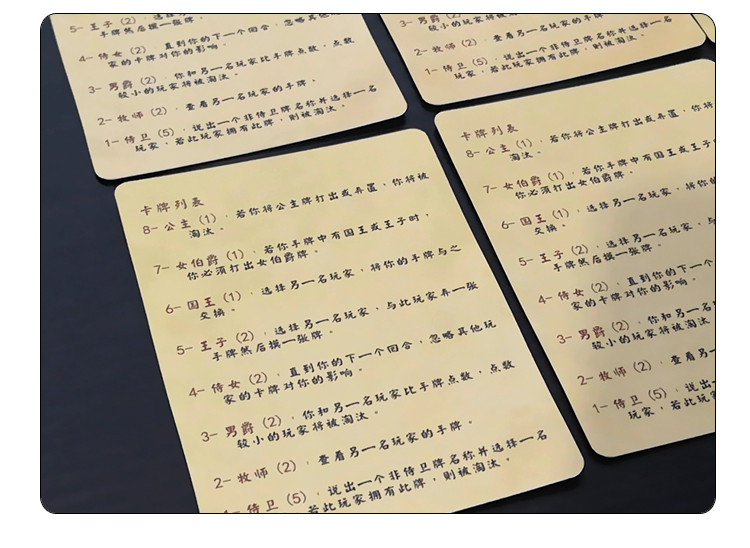 5- 王子（2），选
手牌然后摸一张牌。
4- 侍女（2），直到你的下一个回合，忽略其他
家的卡牌对你的影响。
3- 男爵（2），你和另一名玩家比手牌点数，点数
较小的玩家将被淘汰。
2- 牧师（2），查看另一名玩家的手牌。
1- 侍卫（5），说出一个非侍卫牌名称并选择一名
玩家，若此玩家拥有此牌，则被淘汰。
3- 男爵（2）
较小的玩家将被
2- 牧师（2），查看另一名玩家的手牌。
1- 侍卫（5），说出一个非侍卫牌名称并选择一名
玩家，若此玩家拥有此牌，则被淘汰。
卡牌列表
8- 公主（1），若你将公主牌打出或弃置，你将被
淘汰。
7- 女伯爵（1），若你手牌中有国王或王子时，
你必须打出女伯爵牌。
6- 国王（1），选择另一名玩家，将你的手牌与之
交换。
5- 王子（2），选择另一名玩家，与此玩家弃一张
手牌然后摸一张牌。
4- 侍女（2），直到你的下一个回合，忽略其他玩
家的卡牌对你的影响。
3- 男爵（2），你和另一名玩家比手牌点数，点数
较小的玩家将被淘汰。
2- 牧师（2），查看另一名玩家的手牌。
1- 侍卫（5），说出一个非侍卫牌名称并选择一名
若此玩家拥有此牌，则被淘汰。
卡牌列表
8- 公主（1），若你将公主牌打出或弃置，你将
淘汰。
7- 女伯爵（1），若你手牌中有国王或王子
你必须打出女伯爵牌。
6- 国王（1），选择另一名玩家，将你的
交换。
5- 王子（2），选择另一名玩家，与
手牌然后摸一张牌。
4- 侍女（2），直到你的下一个
家的卡牌对你的影响。
3- 男爵（2），你和另一名
较小的玩家将被淘汰
2- 牧师（2），查看另一
1- 侍卫（5），说出一
玩家，若此玩